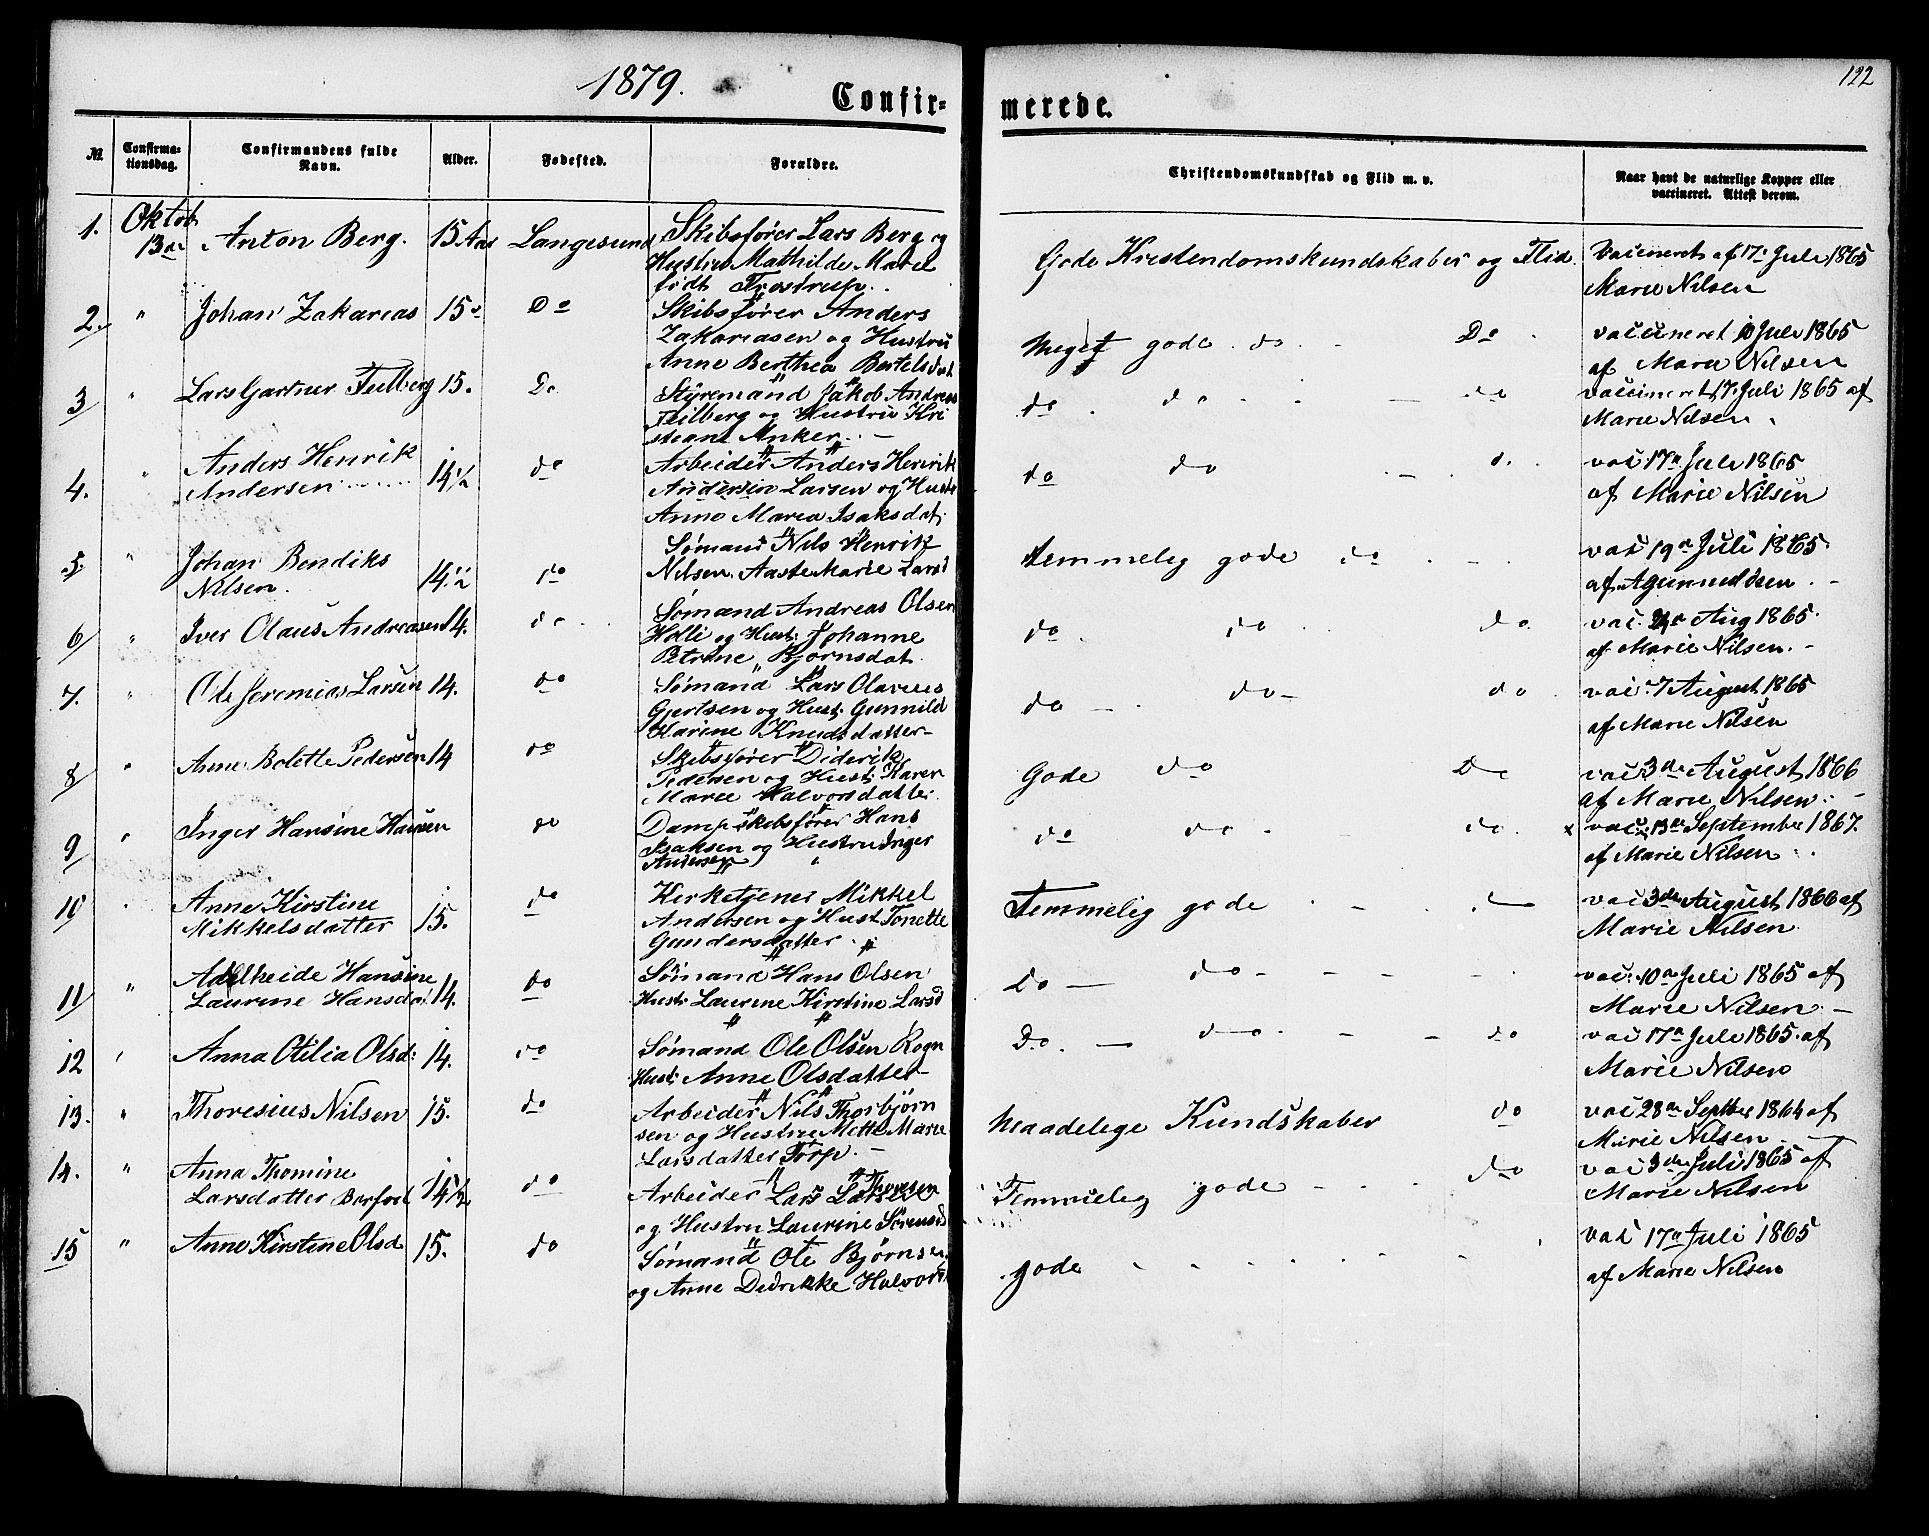 1879.
122
Confir=
merede.
№
Confirma=
tionsdag.
Confirmandens fulde
Navn.
Alder.
Fødested.
Forældre.
Christendomskundskab og Flid m. v.
Naar havt de naturlige Kopper eller
vaccineret. Attest derom.
1. Oktob. 13de Anton Berg. 15 Aar Langesund Skibsfører Lars Berg og
Hustru Mathilde Marie
født Trostrup.
Gode Kristendomskundskaber og Flid. Vacineret af 17. Juli 1865
Marie Nilsen
2. " Johan Zakarias 15 Do Skibsfører Anders
Zakariasen og Hustru
Anne Berthea Bertelsdat
Meget gode do Do vacineret 10 Juli 1865
af Marie Nilsen
3 " Lars Gartner Feilberg 15. Do Styremand Jakob Andreas
Feilberg og Hustru Kri
stiane Anker. -
do do do vaccineret 17. Juli 1865 af
Marie Nilsen.
4. " Anders Henrik
Andersen 14 1/2 do Arbeider Anders Henrik
Andersen Larsen og Hust
Anne Maria Isaksdat.
do do d. vac 17de Juli 1865
af Marie Nilsen
5. " Johan Bendiks
Nilsen. 14 1/2 do Sømand Nils Henrik
Nilsen. Aaste Marie Larsd
temmelig gode do vac 19de Juli 1865.
af
6 " Iver Olaus Andreasen 14. do Sømand Andreas Olsen
Holli og Hust: Johanne
Petrine Bjørnsdat.
do do do vac. Aug 1865.
af Marie Nilsen. -
7. " Ole Jeremias Larsen 14. do Sømand Lars Olavus
Gjertsen og Hust. Gunnild
Karine Knudsdatter-
do do do vac. 7 August 1865
af Marie Nilsen
8 " Anne Bolette Pedersen 14 do Skibsfører Diderik
Pedersen og Hust. Karen
Marie Halvorsdatter.
Gode do Do vac 3de August 1866
af Marie Nilsen. -
9 " Inger Hansine Hansen do Dampskibsfører Hans
Isaksen og Hustru Inger
Andersen
do do do x vac. 13de September 1867.
af Marie Nilsen
10 " Anne Kirstine
Mikkelsdatter 15. do Kirketjener Mikkel
Andersen og Hust Tonette
Gundersdatter
Temmelig gode vac 3de August 1866 af
Marie Nilsen
11 " Adelheide Hansine
Laurine Hansdat 14. do Sømand Hans Olsen
Hust. Laurine Kirstine Larsd
Do do vac. 10de Juli 1865 af
Marie Nilsen -
12 " Anna Otilia Olsd: 14. do Sømand Ole Olsen Rogn
Hust: Anne Olsdatter-
Do. do do vac 17de Juli 1865. af
Marie Nilsen
13. " Thoresius Nilsen 15. do Arbeider Nils Thorbjørn
sen og Hustru Mette Marie
Larsdatter Torp. -
Maadelige Kundskaber do vac 28de Septber 1864 af
Marie Nilsen
14. " Anna Thomine
Larsdatter Barfod 14 1/2 do Arbeider Lars Larsen Thomsen
og Hustru Laurine Sørensd
Temmelig gode do vac 3de Juli 1865 af
Marie Nilsen
15 " Anne Kirstine Olsd 15. do Sømand Ole Bjørnsen
og Anne Didrikke Halvors
gode vac 17de Juli 1865
af Marie Nilsen